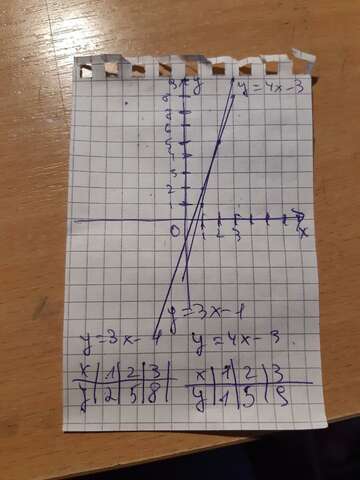 y
y=4x-3
9
8
7
6
5
4
3
2
1
0 1 2 3 x
y=3x-1
y=3x-1 y=4x-3
x 1 2 3 x 1 2 3
y 2 5 8 y 1 5 9